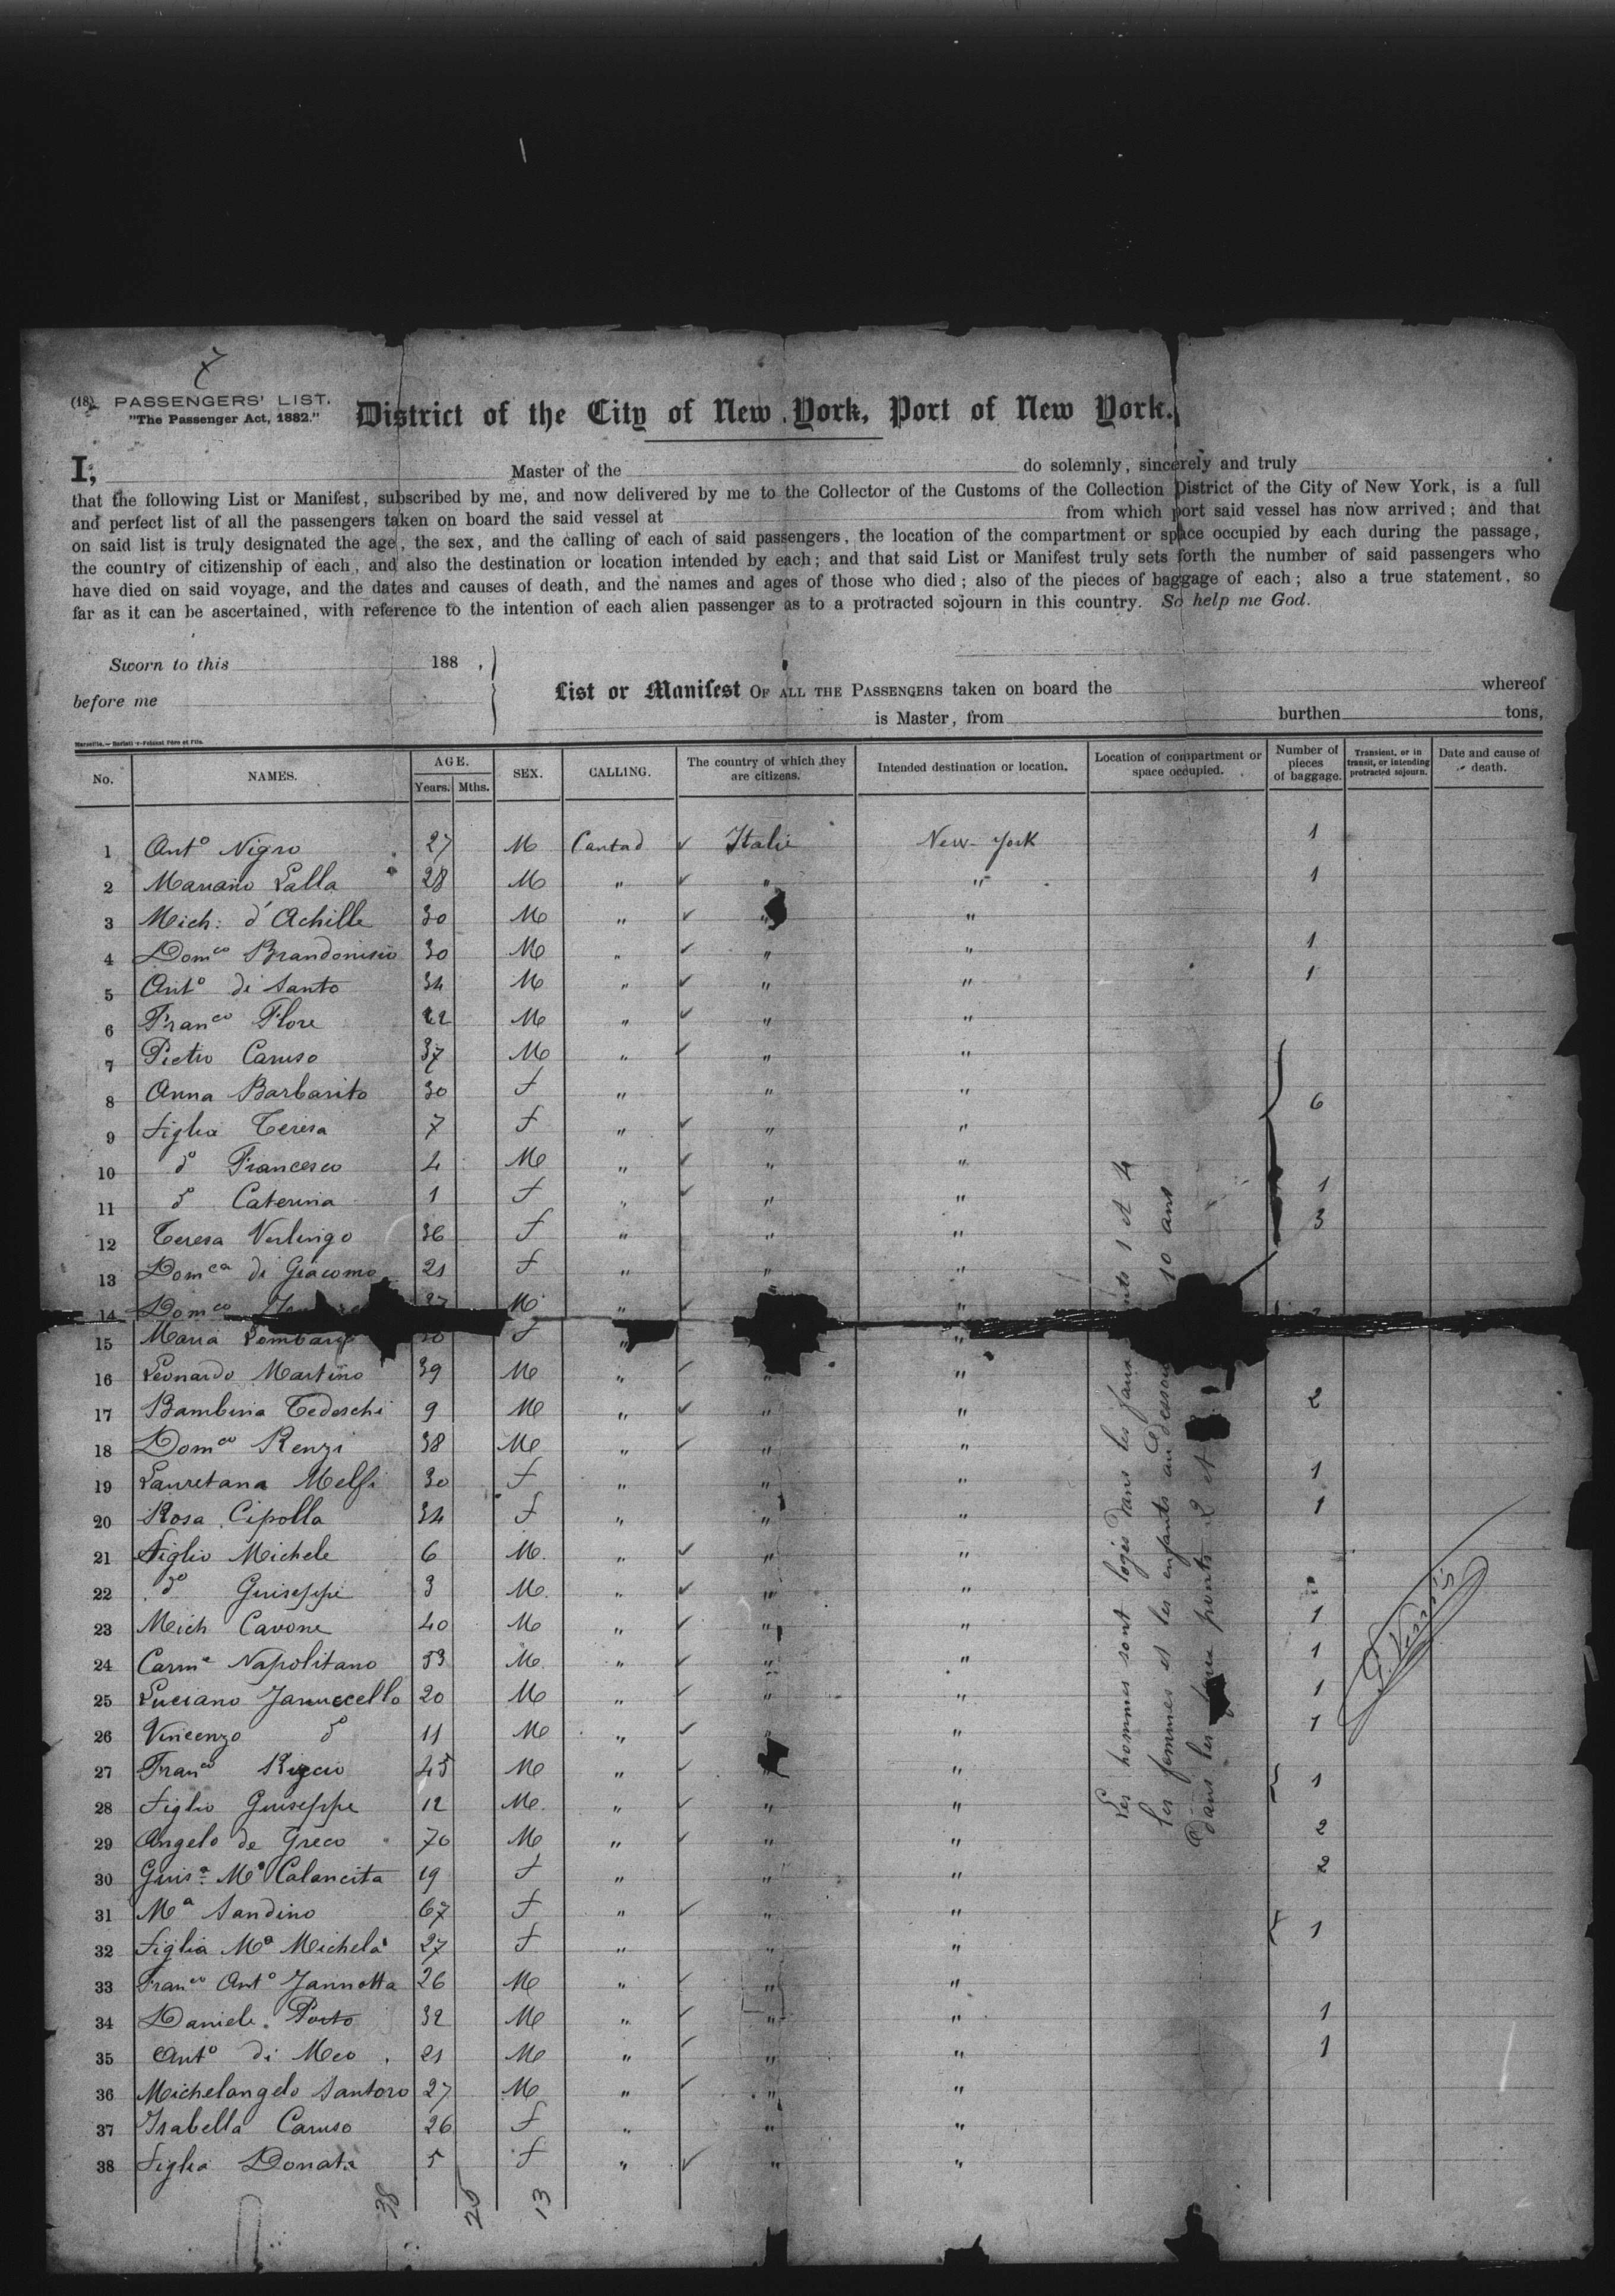 7
(18) PASSENGERS' LIST.
"The Passenger Act, 1882."
District of the City of New York, Port of New York.
I, Master of the do solemnly, sincerely and truly
that the following List or Manifest, subscribed by me, and now delivered by me to the Collector of the Customs of the Collection District of the City of New York, is a full
and perfect list of all the passengers taken on board the said vessel at from which port said vessel has now arrived; and that
on said list is truly designated the age, the sex, and the calling of each of said passengers, the location of the compartment or space occupied by each during the passage,
the country of citizenship of each, and also the destination or location intended by each; and that said List or Manifest truly sets forth the number of said passengers who
have died on said voyage, and the dates and causes of death, and the names and ages of those who died; also of the pieces of baggage of each; also a true statement, so
far as it can be ascertained, with reference to the intention of each alien passenger as to a protracted sojourn in this country. So help me God.
Sworn to this 188 ,
before me
List or Manifest OF ALL THE PASSENGERS taken on board the whereof
is Master, from burthen tons,
No. NAMES. AGE. Years. Mths. SEX. CALLING. The country of which they are citizens. Intended destination or location. Location of compartment or space occupied. Number of pieces of baggage. Transient, or in transit, or intending protracted sojourn. Date and cause of death.
1 Ant° Nigro 27 M Contad Italie New-York 1
2 Mariano Lalla 28 M " " " 1
3 Mich: d'Achille 30 M " " "
4 Dom^co Brandonisio 30 M " " " 1
5 Ant° di Santo 34 M " " " 1
6 Fran^co Flore 22 M " " "
7 Pietro Caruso 37 M " " "
8 Anna Barbarito 30 F " " " 6
9 Figlia Teresa 7 F " " "
10 d° Francesco 4 M " " "
11 d° Caterina 1 F " " " 1
12 Teresa Verlingo 36 F " " " 3
13 Dom^ca di Giacomo 21 F " " "
14 Dom^co M " "
15 Maria F " "
16 Leonardo Martino 39 M " " "
17 Bambina Tedeschi 9 M " " " 2
18 Dom^co Renzi 38 M " " "
19 Lauretana Melfi 30 F " " " 1
20 Rosa Cipolla 34 F " " " 1
21 Figlio Michele 6 M. " " "
22 d° Guiseppe 3 M. " " "
23 Mich Cavone 40 M " " " 1
24 Carm^e Napolitano 53 M. " " " 1
25 Luciano Januccello 20 M " " " 1
26 Vincenzo d° 11 M " " " 1
27 Fran^co Riccio 45 M " " " 1
28 Figlio Guiseppe 12 M. " " "
29 Angelo de Greco 70 M " " " 2
30 Guis^a M^a Calancita 19 F " " " 2
31 M^a Sandino 67 F " " "
32 Figlia M^a Michela 27 F " " " 1
33 Fran^co Ant° Jannotta 26 M " " "
34 Daniele Porto 32 M " " " 1
35 Ant° di Meo 21 M " " " 1
36 Michelangelo Santoro 27 M " " "
37 Isabella Caruso 26 F " " "
38 Figlia Donata 5 F " " "
Les hommes sont logés dans les faux ponts 1 et 4
Les femmes et les enfants au dessous 10 ans
dans les faux ponts 2 et
38 25 13